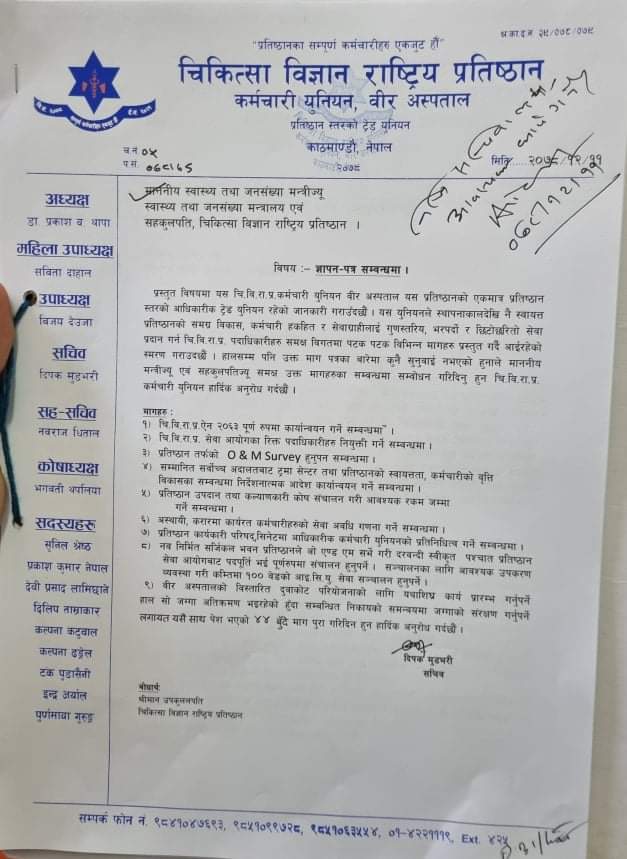 श्र.का.द.नं. २९/०७८/०७९
"प्रतिष्ठानका सम्पूर्ण कर्मचारीहरु एकजुट हौं"
चिकित्सा विज्ञान राष्ट्रिय प्रतिष्ठान
कर्मचारी युनियन, वीर अस्पताल
प्रतिष्ठान स्तरको ट्रेड युनियन
काठमाण्डौ, नेपाल
२०७८
च.नं. ०५
प.सं. ०७८।७९
मिति २०७८/१२/११
माननीय स्वास्थ्य तथा जनसंख्या मन्त्रीज्यू
स्वास्थ्य तथा जनसंख्या मन्त्रालय एवं
सहकुलपति, चिकित्सा विज्ञान राष्ट्रिय प्रतिष्ठान ।
विषय :– ज्ञापन-पत्र सम्बन्धमा ।
प्रस्तुत विषयमा यस चि.वि.रा.प्र.कर्मचारी युनियन वीर अस्पताल यस प्रतिष्ठानको एकमात्र प्रतिष्ठान
स्तरको आधिकारीक ट्रेड युनियन रहेको जानकारी गराउदछौं । यस युनियनले स्थापनाकालदेखि नै स्वायत्त
प्रतिष्ठानको समग्र विकास, कर्मचारी हकहित र सेवाग्राहीलाई गुणस्तरिय, भरपर्दो र छिटोछरितो सेवा
प्रदान गर्न चि.वि.रा.प्र. पदाधिकारीहरु समक्ष विगतमा पटक पटक विभिन्न मागहरु प्रस्तुत गर्दै आईरहेको
स्मरण गराउदछौं । हालसम्म पनि उक्त माग पत्रका बारेमा कुनै सुनुवाई नभएको हुनाले माननीय
मन्त्रीज्यू एवं सहकुलपतिज्यू समक्ष उक्त मागहरुका सम्बन्धमा सम्वोधन गरिदिनु हुन चि.वि.रा.प्र.
कर्मचारी युनियन हार्दिक अनुरोध गर्दछौं ।
मागहरु :
१) चि.वि.रा.प्र.ऐन २०६३ पूर्ण रुपमा कार्यान्वयन गर्ने सम्बन्धमा ।
२) चि.वि.रा.प्र. सेवा आयोगका रिक्त पदाधिकारीहरु नियुक्ती गर्ने सम्बन्धमा ।
३) प्रतिष्ठान तर्फको O & M Survey हुनुपन सम्बन्धमा ।
४) सम्मानित सर्वोच्च अदालतबाट ट्रमा सेन्टर तथा प्रतिष्ठानको स्वायत्तता, कर्मचारीको वृत्ति
विकासका सम्बन्धमा निर्देशनात्मक आदेश कार्यान्वयन गर्ने सम्बन्धमा ।
५) प्रतिष्ठान उपदान तथा कल्याणकारी कोष संचालन गरी आवश्यक रकम जम्मा
गर्ने सम्बन्धमा ।
६) अस्थायी, करारमा कार्यरत कर्मचारीहरुको सेवा अवधि गणना गर्ने सम्बन्धमा ।
७) प्रतिष्ठान कार्यकारी परिषद्,सिनेटमा आधिकारीक कर्मचारी युनियनको प्रतिनिधित्व गर्ने सम्बन्धमा ।
८) नव निर्मित सर्जिकल भवन प्रतिष्ठानले ओ एण्ड एम सर्भे गरी दरवन्दी स्वीकृत पश्चात प्रतिष्ठान
सेवा आयोगबाट पदपूर्ति भई पूर्णरुपमा संचालन हुनुपर्ने । सञ्चालनका लागि आवश्यक उपकरण
व्यवस्था गरी कम्तिमा १०० वेडको आई.सि.यु. सेवा सञ्चालन हुनुपर्ने ।
९) वीर अस्पतालको विस्तारित दुवाकोट परियोजनाको लागि यथाशिघ्र कार्य प्रारम्भ गर्नुपर्ने
हाल सो जग्गा अतिक्रमण भइरहेको हुँदा सम्बन्धित निकायको समन्वयमा जग्गाको संरक्षण गर्नुपर्ने
लगायत यसै साथ पेश भएको ४४ बुँदे माग पुरा गरिदिन हुन हार्दिक अनुरोध गर्दछौं ।
दिपक मुडभरी
सचिव
बोधार्थ:
श्रीमान उपकुलपति
चिकित्सा विज्ञान राष्ट्रिय प्रतिष्ठान
अध्यक्ष
डा. प्रकाश ब. थापा
महिला उपाध्यक्ष
सविता दाहाल
उपाध्यक्ष
विजय देउजा
सचिव
दिपक मुडभरी
सह-सचिव
नवराज धिताल
कोषाध्यक्ष
भगवती थपलिया
सदस्यहरु
सुनिल श्रेष्ठ
प्रकाश कुमार नेपाल
देवी प्रसाद लामिछाने
दिलिप ताम्राकार
कल्पना कटुवाल
कल्पना ढुङ्गेल
टंक पुडासैनी
इन्द्र अर्याल
पुर्णमाया गुरुङ
सम्पर्क फोन नं. ९८४१०४७६९३, ९८५१०९९७२८, ९८५१०६३५५४, ०१-४२२१११९, Ext. ४२५